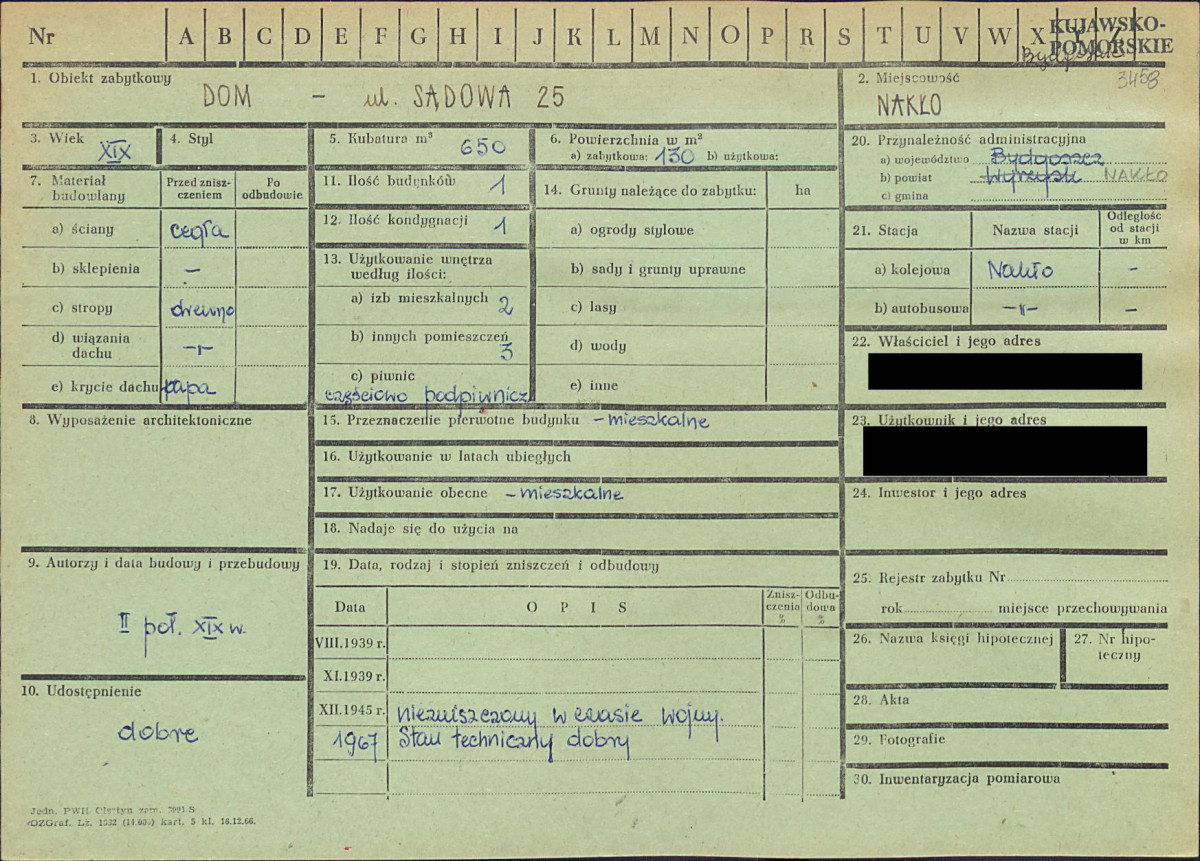 Nr A B C D E F G H I J K L M N O P R S T U V W X Y Z
KUJAWSKO-
POMORSKIE
Bydgoszcz
3458
1. Obiekt zabytkowy
DOM – ul. SĄDOWA 25
2. Miejscowość
NAKŁO
3. Wiek XIX
4. Styl
5. Kubatura m³ 650
6. Powierzchnia w m²
a) zabytkowa: 130 b) użytkowa:
7. Materiał budowlany
Przed zniszczeniem
Po odbudowie
a) ściany cegła
b) sklepienia –
c) stropy drewno
d) wiązania dachu –"–
e) krycie dachu papa
8. Wyposażenie architektoniczne
9. Autorzy i data budowy i przebudowy
II poł. XIX w.
10. Udostępnienie
dobre
11. Ilość budynków 1
12. Ilość kondygnacji 1
13. Użytkowanie wnętrza
według ilości:
a) izb mieszkalnych 2
b) innych pomieszczeń 3
c) piwnic
częściowo podpiwnicz
14. Grunty należące do zabytku: ha
a) ogrody stylowe
b) sady i grunty uprawne
c) lasy
d) wody
e) inne
15. Przeznaczenie pierwotne budynku – mieszkalne
16. Użytkowanie w latach ubiegłych
17. Użytkowanie obecne – mieszkalne
18. Nadaje się do użycia na
19. Data, rodzaj i stopień zniszczeń i odbudowy
Data OPIS Zniszczenia % Odbudowa %
VIII.1939 r.
XI.1939 r.
XII.1945 r. niezniszczony w czasie wojny.
1967 Stan techniczny dobry
20. Przynależność administracyjna
a) województwo Bydgoszcz
b) powiat Wyrzysk NAKŁO
c) gmina
21. Stacja Nazwa stacji Odległość od stacji w km
a) kolejowa Nakło –
b) autobusowa –"– –
22. Właściciel i jego adres
23. Użytkownik i jego adres
24. Inwestor i jego adres
25. Rejestr zabytku Nr
rok miejsce przechowywania
26. Nazwa księgi hipotecznej
27. Nr hipoteczny
28. Akta
29. Fotografie
30. Inwentaryzacja pomiarowa
Jedn. PWH Olsztyn zam. 2091 S
OZGraf. Lz. 1932 (14.000) kart. 5 kl. 16.12.66.